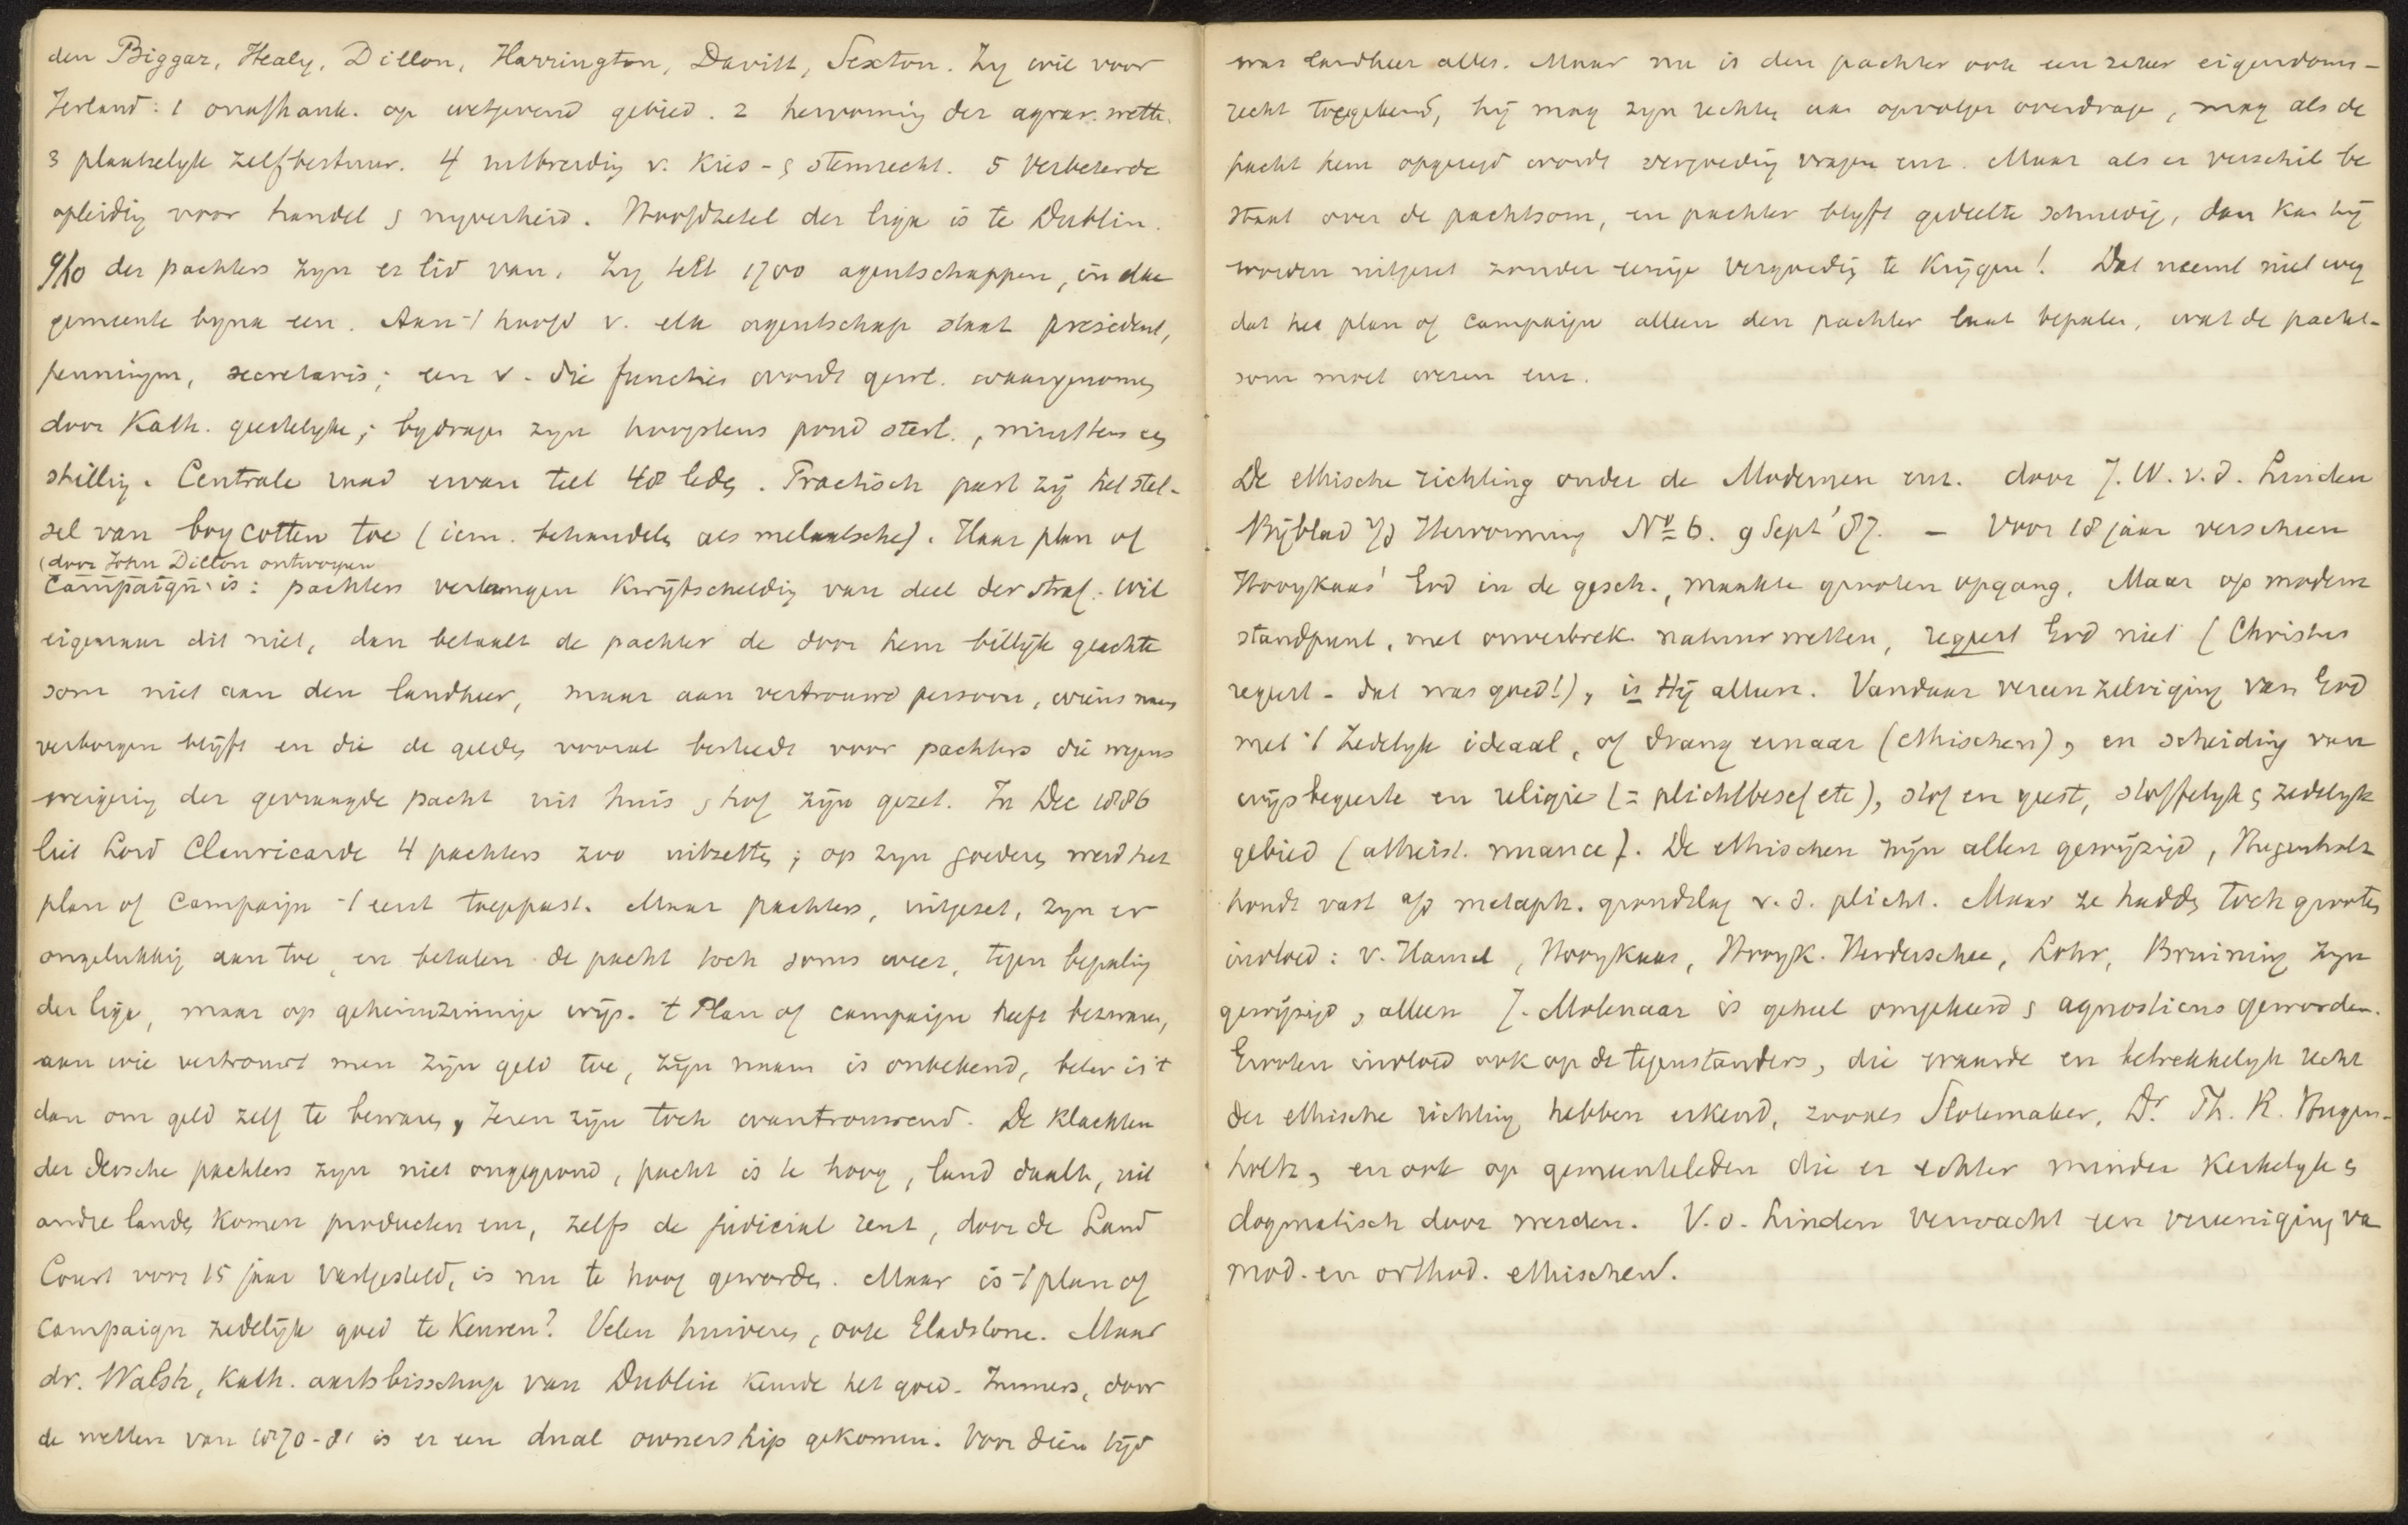 den Biggar, Healy, Dillon, Harrington, Davitt, Sexton. Zy wil voor
Ierland: 1 onafhank. op wetgevend gebied. 2 hervorming der agrar. wette.
3 plaatselyk zelfbestuur. 4 uitbreidig v. Kies- & stemrecht. 5 Verbeterde
opleidig voor handel & nyverheid. Hoofdzetel der liga is te Dublin.
9/10 der pachters zyn er lid van. Zy telt 1700 agentschappen, in elke
gemeente byna een. Aan 't hoofd v. elk agentschap staat president,
penningm, secretaris; een v. die functies wordt gewl. waargenomen
door Kath. geestelyke; bydragen zyn hoogstens pond sterl., minstens een
shilling. Centrale raad ervan telt 48 leden. Practisch past zij het stel-
sel van boycotten toe (iem. behandelen als melaatsche). Haar plan of
(door John Dillon ontworpen
Campaign is: pachters verlangen kwijtscheldig van deel der straf. Wil
eigenaar dit niet, dan betaalt de pachter de door hem billijk geachte
som niet aan den landheer, maar aan vertrouwd persoon, wiens naam
verborgen blijft en die de gelden vooral besteedt voor pachters die wegens
weigerig der gevraagde pacht uit huis & hof zijn gezet. In Dec 1886
liet Lord Clanricarde 4 pachters zoo uitzetten; op zyn goederen werd het
plan of Campaign 't eerst toegepast. Maar pachters, uitgezet, zyn er
ongelukkig aan toe, en betalen de pacht toch soms weer, tegen bepaling
der liga, maar op geheimzinnige wijs. 't Plan of campaign heeft bezwaren,
aan wie vertrouwt men zijn geld toe, zijn naam is onbekend, beter is 't
dan om geld zelf te bewaren, Ieren zijn toch wantrouwend. De klachten
der Iersche pachters zyn niet ongegrond, pacht is te hoog, land daalt, uit
andre landen komen producten enz, zelfs de judicial rent, door de Land
Court voor 15 jaar vastgesteld, is nu te hoog geworden. Maar is 't plan of
campaign zedelijk goed te keuren? Velen huiveren, ook Gladstone. Maar
dr. Walsh, Kath. aartsbisschop van Dublin keurde het goed. Immers, door
de wetten van 1870-81 is er een dual ownership gekomen. Voor dien tijd
was landheer alles. Maar nu is den pachter ook een zeker eigendoms-
recht toegekend, hij mag zyn rechten aan opvolger overdragen, mag als de
pacht hem opgezegd wordt vergoedig vragen enz. Maar als er verschil be
staat over de pachtsom, en pachter blyft gedeelte schuldig, dan kan hij
worden uitgezet zonder eenige vergoedig te krijgen! Dat neemt niet weg
dat het plan of campaign alleen den pachter laat bepalen, wat de pacht-
som moet wezen enz.
De ethische richting onder de Modernen enz. door J. W. v. d. Linden
Bijblad v/d Hervorming No 6. 9 Sept '87. — Voor 18 jaar verscheen
Hooykaas' God in de gesch., maakte grooten opgang. Maar op modern
standpunt, met onverbrek. natuurwetten, regeert God niet (Christus
regeert - dat was goed!), is Hij alleen. Vandaar vereenzelviging van God
met 't zedelyk ideaal, of drang ernaar (ethischen), en scheiding van
wijsbegeerte en religie (= plichtbesef etc), stof en geest, stoffelyk & zedelyk
gebied (atheist. nuance). De ethischen zijn allen gewijzigd, Hugenholtz
houdt vast a/d metaph. grondslag v. d. plicht. Maar ze hadden toch grooten
invloed: v. Hamel, Hooykaas, Hooyk. Herderschee, Lohr, Bruining zyn
gewijzigd, alleen J. Molenaar is geheel omgekeerd & agnosticus geworden.
Grooten invloed ook op de tegenstanders, die waarde en betrekkelyk recht
der ethische richting hebben erkend, zooals Slotemaker, Dr Th. R. Hugen-
holtz, en ook op gemeenteleden die er echter minder kerkelyk &
dogmatisch door werden. V. d. Linden verwacht een vereeniging va
mod. en orthod. ethischen.